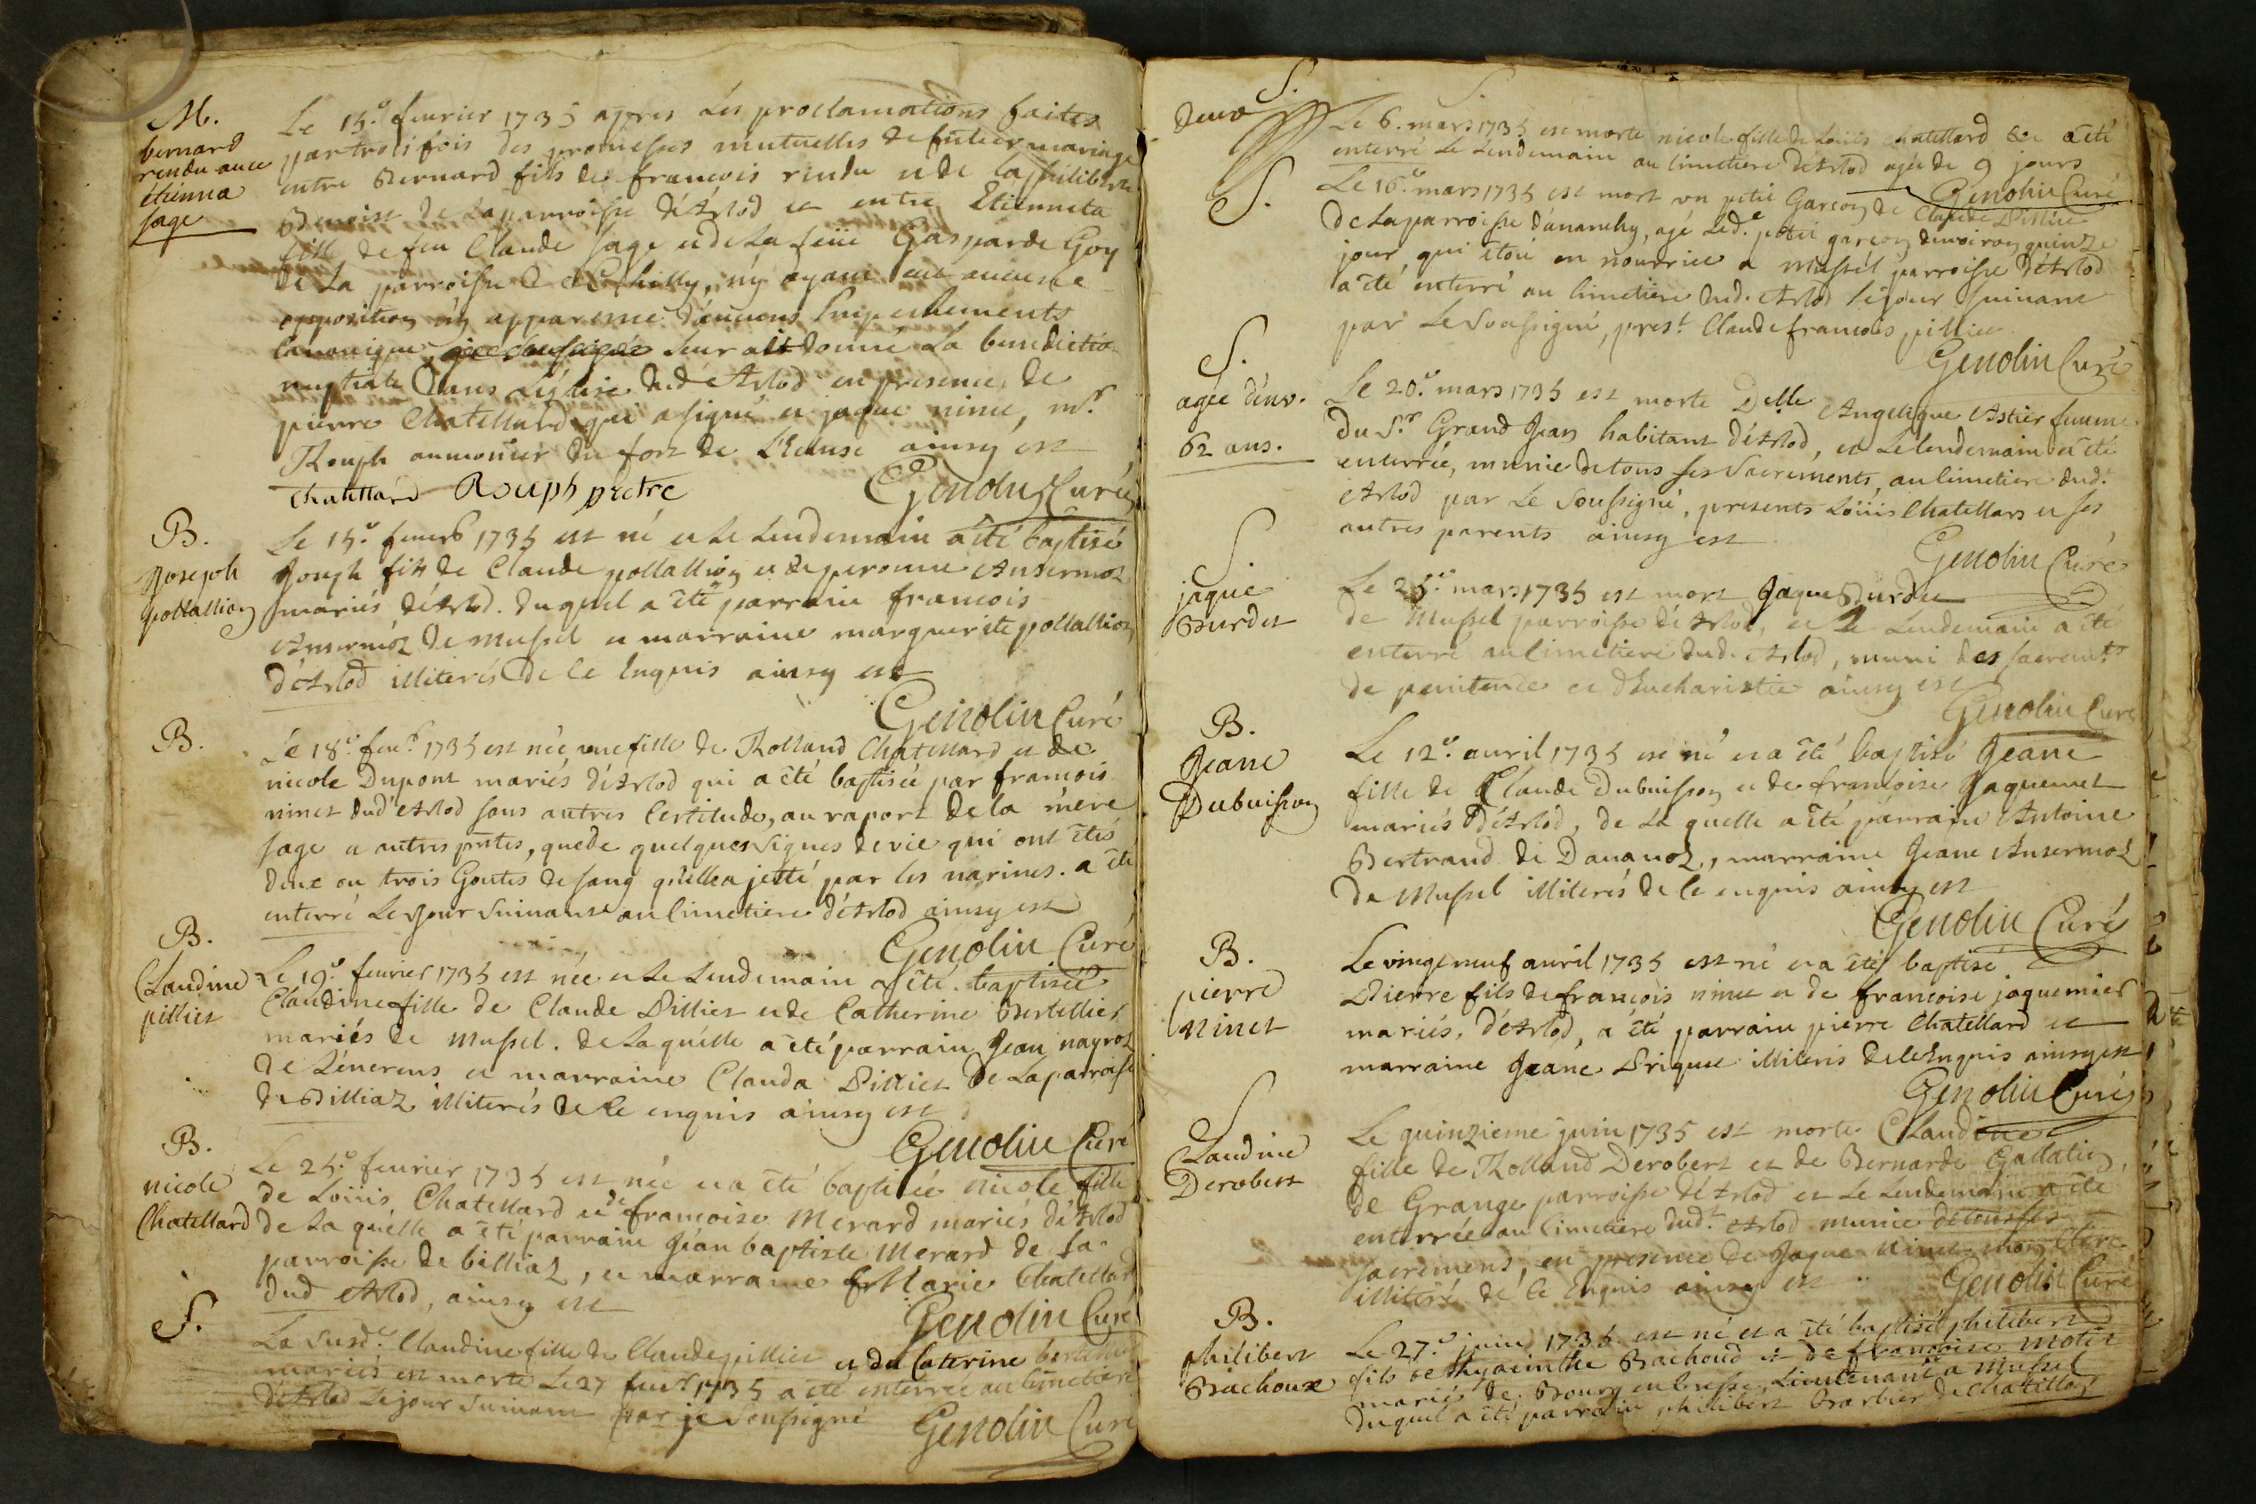 M.
bernard
rendu avec
étienna
sage
Le 15.e feuvrier 1735 apres les proclamations faites
par trois fois des promesses mutuelles de futur mariage
entre Bernard fils de françois rendu et de la philiberte
Benoist de la parroisse d'Arlod et entre Etiennета
fille de feu Claude sage et de la feüe Gasparde Goy
de la parroisse de Chilly, n'y ayant eut aucune
opposition n'y apparence d'aucuns Empechements
canonique, je soussigné leur ait donné la benedictio
nuptiale dans l'église dud. Arlod en presence de
pierre Chatellard qui a signé et jaque ninet, mr.
Rouph aumonier du fort de l'Ecluse ainsy est
Chatellard Rouph pretre Genolin Curé
B.
Joseph
pollallion
Le 15.e feuvr. 1735 est né et le lendemain a été baptisé
Joseph fils de Claude pollallion et de peronne Ansermoz
mariés d'Arlod. duquel a été parrain françois
Ansermoz de Mussel et marraine marguerite pollallion
d'Arlod illiterés de ce Enquis ainsy est
Genolin Curé
B.
Le 18.e feuvr. 1735 est née une fille de Rolland Chatellard et de
nicole Dupont mariés d'Arlod qui a été baptisée par françois
ninet dud. Arlod sans autres Certitudes, au raport de la mere
sage et autres pntes, que de quelques signes de vie qui ont étés
deux ou trois Goutes de sang qu'elle a jetté par les narines. a été
enterré le jour suivant au Cimetiere d'Arlod ainsy est
Genolin Curé
B.
Claudine
pilliet
Le 19.e feuvrier 1735 est née et le lendemain a été baptisée
Claudine fille de Claude Pilliet et de Catherine Bertillier
mariés de Mussel. de la quelle a été parrain Jean nayroz
de Lenereus et marraine Clauda Pilliet de la parroisse
de Billiaz illiterés de ce enquis ainsy est
Genolin Curé
B.
nicole
Chatellard
Le 25.e feuvrier 1735 est née et a été baptisée nicole fille
de Loüis Chatellard et de françoise Merard mariés d'Arlod
de la quelle a été parrain Jean baptiste Merard de la
parroisse de billiaz, et marraine Marie Chatellard
dud Arlod, ainsy est
Genolin Curé
S.
La susd.e Claudine fille de Claude pilliet et de Caterine bertillier
mariés est morte le 27 feuvr. 1735 a été enterrée au Cimetiere
d'Arlod le jour suivant par je soussigné
Genolin Curé
S.
deux
Le 6. mars 1735 est morte nicole fille de Loüis Chatellard et a été
enterré le lendemain au Cimetiere d'Arlod agée de 9 jours
Genolin Curé
S.
Le 16.e mars 1735 est mort un petit Garçon de Claude Pilliet
de la parroisse d'ananchy, agé led. petit garçon d'environ quinze
jour qui étoit en nourrice a Mussel parroisse d'Arlod
a été enterré au Cimetiere dud. Arlod le jour suivant
par le Soussigné, prest. Claude françois pilliet
Genolin Curé
S.
agée d'env.
62 ans.
Le 20.e mars 1735 est morte Delle Angelique Astier femme
du S.r Grand Jean habitant d'Arlod, et le lendemain a été
enterrée, munie de tous ses Sacrements, au Cimetiere dud.
Arlod par le Soussigné, presents Loüis Chatellard et ses
autres parents ainsy est
Genolin Curé
S.
jaque
Burdet
Le 25.e mars 1735 est mort Jaque Burdet
de Mussel parroisse d'Arlod, et le lendemain a été
enterré au Cimetiere dud. Arlod, muni des sacremts.
de penitence et d'Eucharistie ainsy est
Genolin Curé
B.
Jeane
Dubuisson
Le 12.e avril 1735 est né et a été baptisé Jeane
fille de Claude Dubuisson et de françoise Jaquemet
mariés d'Arlod, de la quelle a été parrain Antoine
Bertrand de Davanoz, marraine Jeane Ansermoz
de Mussel illiterés de ce enquis ainsy est
Genolin Curé
B.
pierre
Ninet
Le vingt neuf avril 1735 est né et a été baptisé
Pierre fils de françois ninet et de françoise jaquemier
mariés, d'Arlod, a été parrain pierre Chatellard et
marraine Jeane Briquet illiteris de ce Enquis ainsy est
Genolin Curé
S
Claudine
Derobert
Le quinzieme juin 1735 est morte Claudine
fille de Rolland Derobert et de Bernarde Gallatin
de Grange parroisse d'Arlod et le lendemain a été
enterrée au Cimetiere dud. Arlod munie de tous ses
sacremens, en presence de Jaque Ninet
illiteré de ce Enquis ainsy est
Genolin Curé
B.
philibert
Bachoux
Le 27.e juin 1735 est né et a été baptisé philibert
fils de hyacinthe Bachoud et de françoise Motet
mariés de Bourg en bresse, Lieutenant a Mussel
duquel a été parrain philibert Barbier de Chatillon